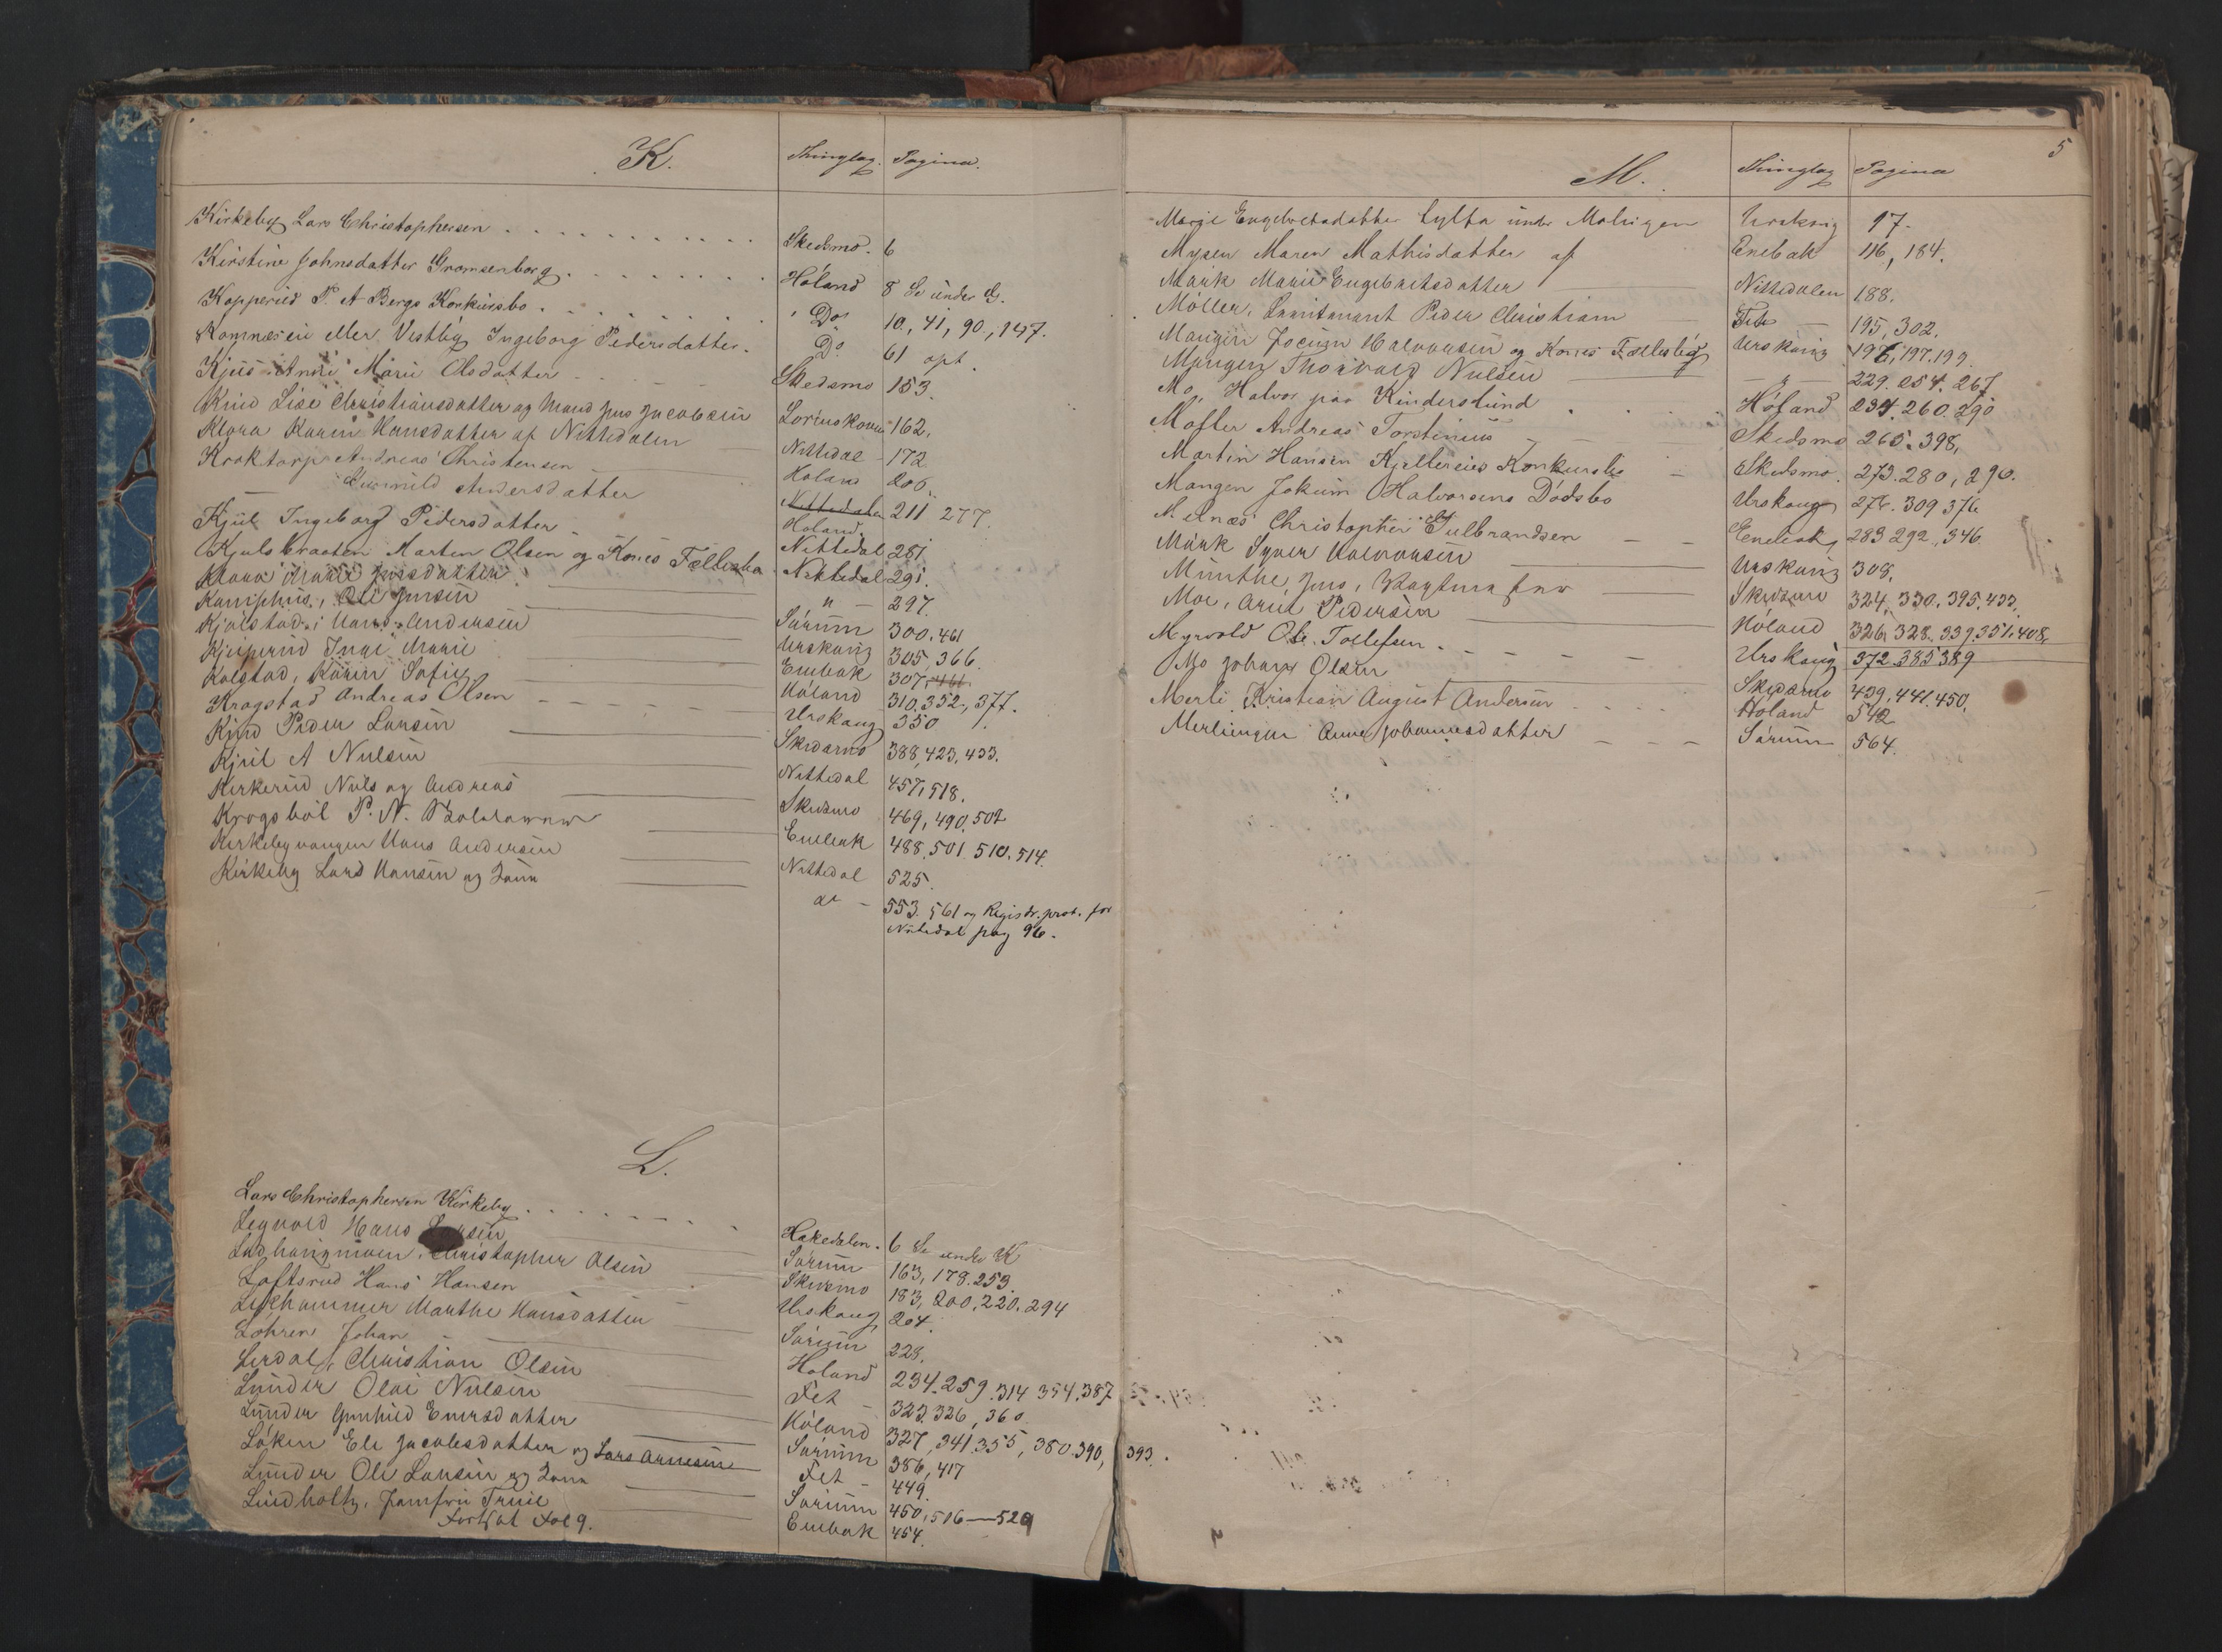 K. Thinglag. Pagina.
Kirkeby Lars Christophersen Skedsmo. 6
Kirstine Johnsdatter Gromsenborg. Höland 8 Se under G.
Kopperud P. A Bergs Konkursbo. Do 10, 41, 90, 147.
Komnæseie eller Vestby Ingeborg Pedersdatter. Do 61 opt.
Kjus Anne Marie Olsdatter Skedsmo 153.
Kind Lise Christiansdatter og Mand Jens Jacobsen 162.
Klara Karen Hansdatter af Nittedalen Nittedal 172
Kroktorp Andreas Christensen Holand 206.
Gunnild Andersdatter Nittedalen 211 277.
Kjul Ingeborg Pedersdatter Holand
Kjulsbraaten Martin Olsen og Kones Fællesbo Nittedal 281
Klara Marie Jensdatter Nittedal 291.
Ole Jensen " 297.
Kjölstad, Hans Andersen Sörum 300. 461
Inge Marie Urskoug 305, 366.
Kolstad, Karen Sofie Enebak 307, 461.
Krogstad Andreas Olsen Höland 310. 352, 377.
Kjud Peder Larsen Urskaug 350
Kjul A Nielsen Skedsmo 388, 423, 433.
Kirkerud Niels og Andreas Nittedal 457, 518.
Krogsböl P. N. Skedsmo 469, 490. 502
Kirkebyvangen Hans Andersen Enebak 488. 501. 510. 514.
Kirkeby Lars Hansen og Kone Nittedal 525.
do 553. 561 og Registr. prot. for
Nitedal pag 96.
L.
Lars Christophersen Kirkeby Hakedalen. 6 Se under K
Hans Sörum 163, 178. 253
Christopher Olsen Skedsmo 183, 200. 220. 294
Loftsrud Hans Hansen Urskoug 204.
Marthe Hansdatter Sörum 228.
Lohren Johan Holand 234. 259. 314 354. 387
Lerdal, Christian Olsen Fet 323. 326, 360
Lunder Olai Nielsen Höland 327, 341. 355, 380. 390, 393.
Lunder Gunhild Enersdatter Sörum 386, 417
Löken Eli Jacobsdatter og Lars Arnesen Fet 449.
Lunder Ole Larsen og Kone Sörum 450, 516—520
Lindholtz, Jomfru Trine Enebak 454.
Fortsat Fol 9.
5
M. Thinglag Pagina
Margit Engebretsdatter under 17.
Mysen Maren Mathisdatter af Enebak 116, 184.
Mörk Marie Engebretsdatter Nittedalen 188.
Möller, Peder Christian Fet 195, 302.
Mangen Jocum Halvorsen og Kones Fællesbo Urskoug 196, 197. 199
Mangen Thorvald Nielsen " 229. 254. 267
Mo, Halvor paa Kinderslund Höland 234. 260. 290
Andreas Torstensen Skedsmo 265. 398,
Martin Hansen Kjellereies Konkursbo Skedsmo. 273. 280, 290.
Mangen Jokum Halvorsens Dödsbo Urskoug 276. 309 376
Melnæs Christopher Gulbrandsen Enebak, 283 292, 346
Mörk Syver Halvorsen Urskoug 308.
Munthe, Jens, Skedsmo 324, 330. 395. 433.
Moe, Arne Pedersen Höland 326. 328. 339. 351. 408,
Myrvold Ole Tollefsen. Urskoug 372. 385 389
Mo Johan Olsen Skedsmo 439, 441. 450,
Merli Kristian August Andersen Höland 542
Anne Johannesdatter Sörum 564.